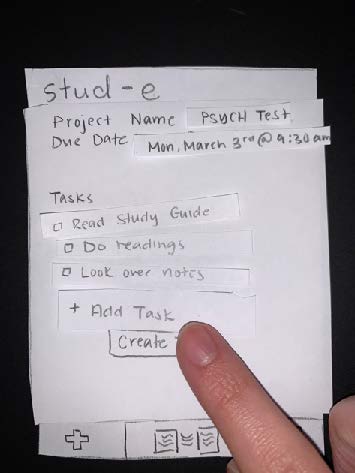 stud-e
Project Name PSYCH Test
Due Date Mon, March 3rd @ 9:30 am
TASKS
Read Study Guide
Do readings
Look over notes
+ Add Task
Create